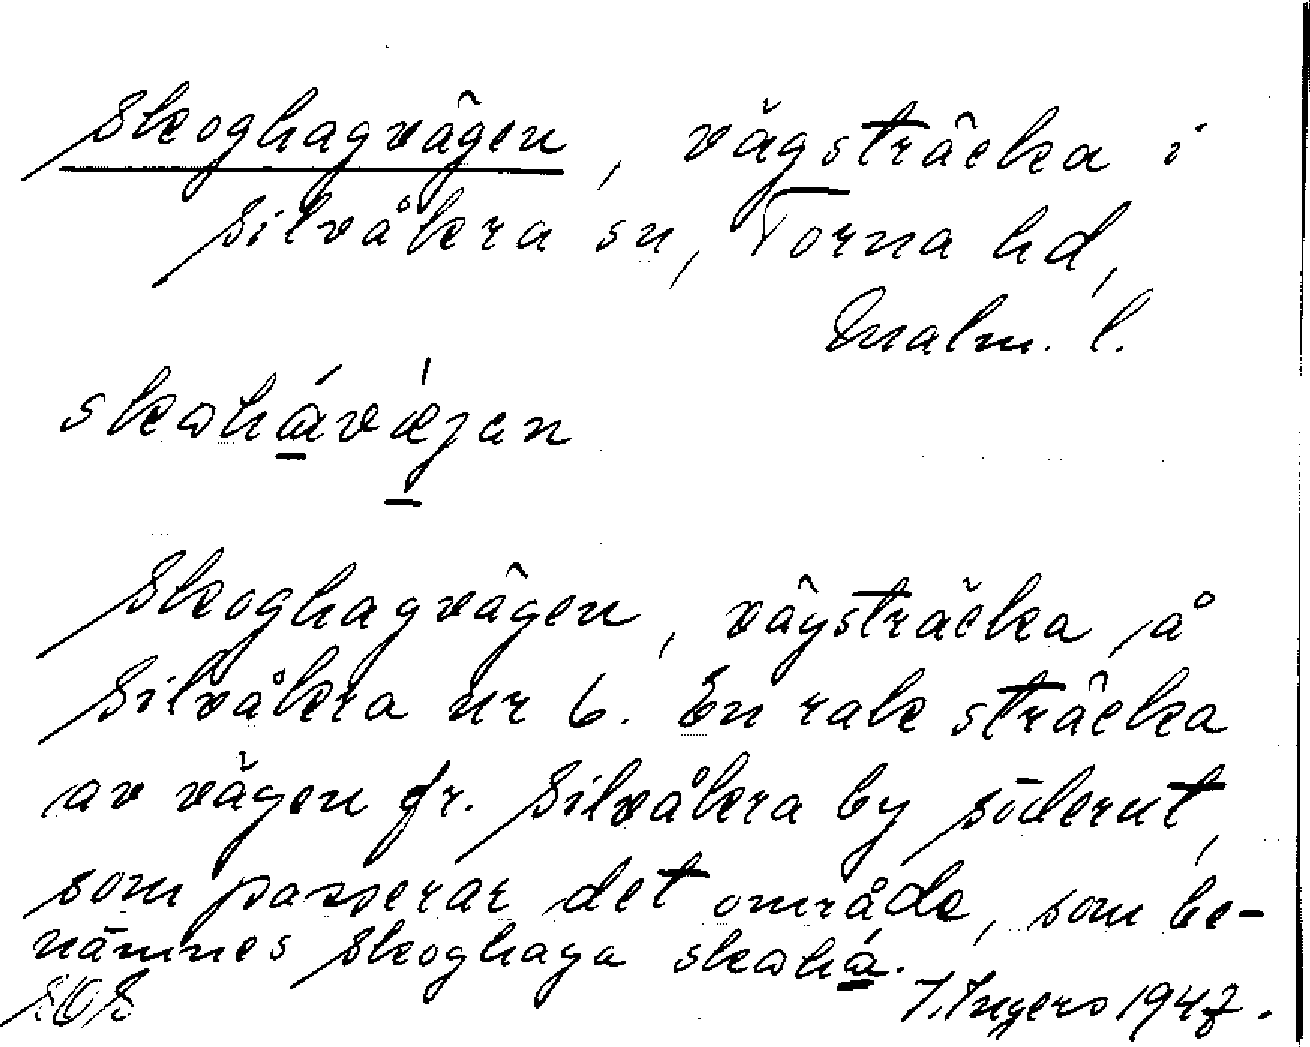 Skoghagvägen, vägsträcka i
Silvåkra sn, Torna hd,
Malm. l.
skωhά̱væ̱̀jən
Skoghagvägen, vägsträcka å
Silvåkra nr 6. En rak sträcka
av vägen fr. Silvåkra by söderut,
som passerar det område, som be-
nämnes Skoghaga skωhά̱.
SOS I. Ingers 1947.